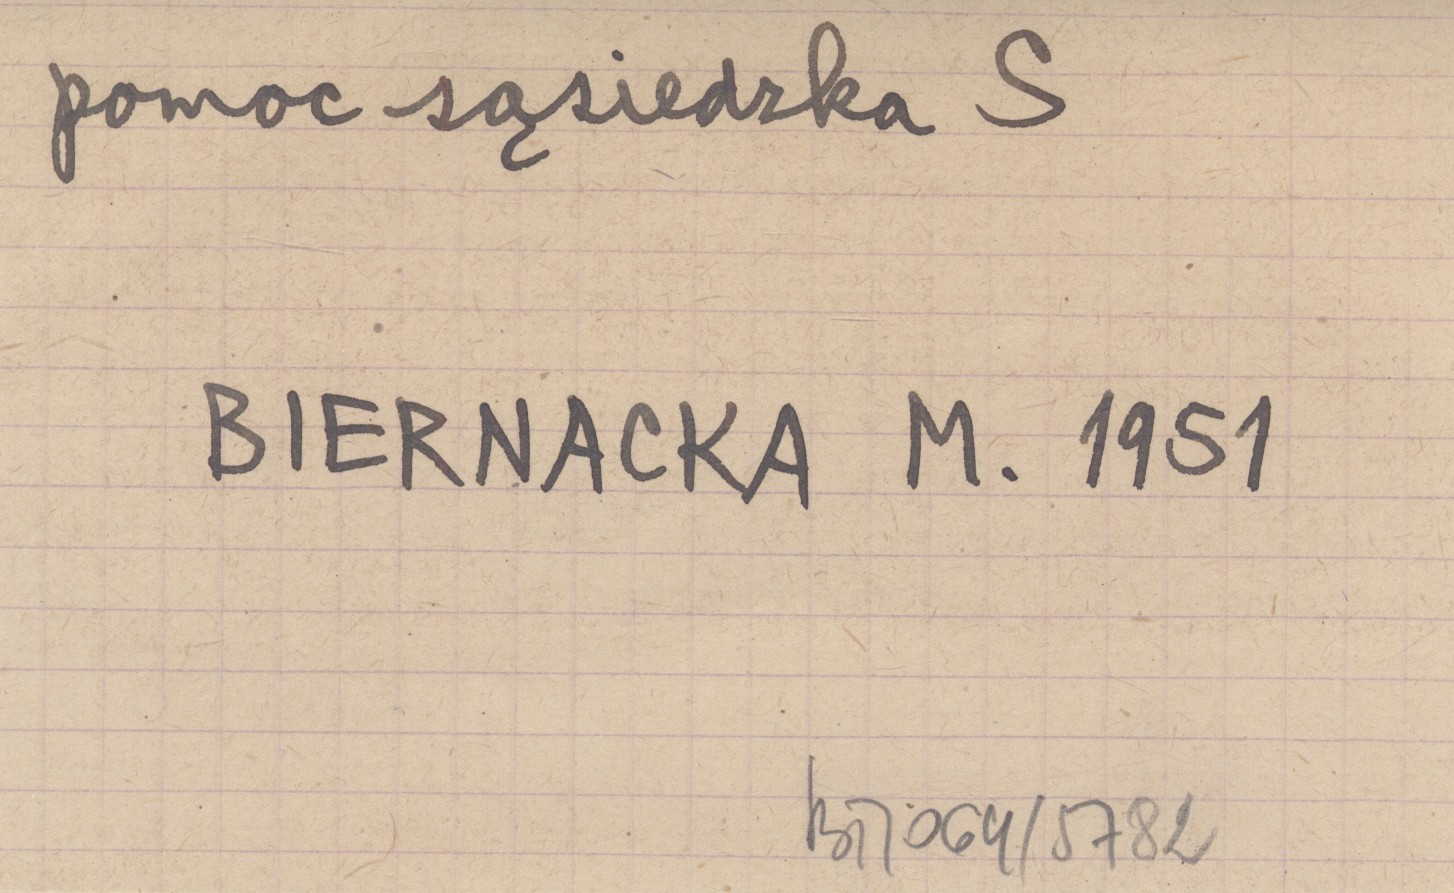 pomoc sąsiedzka S
BIERNACKA M. 1951
064/5782